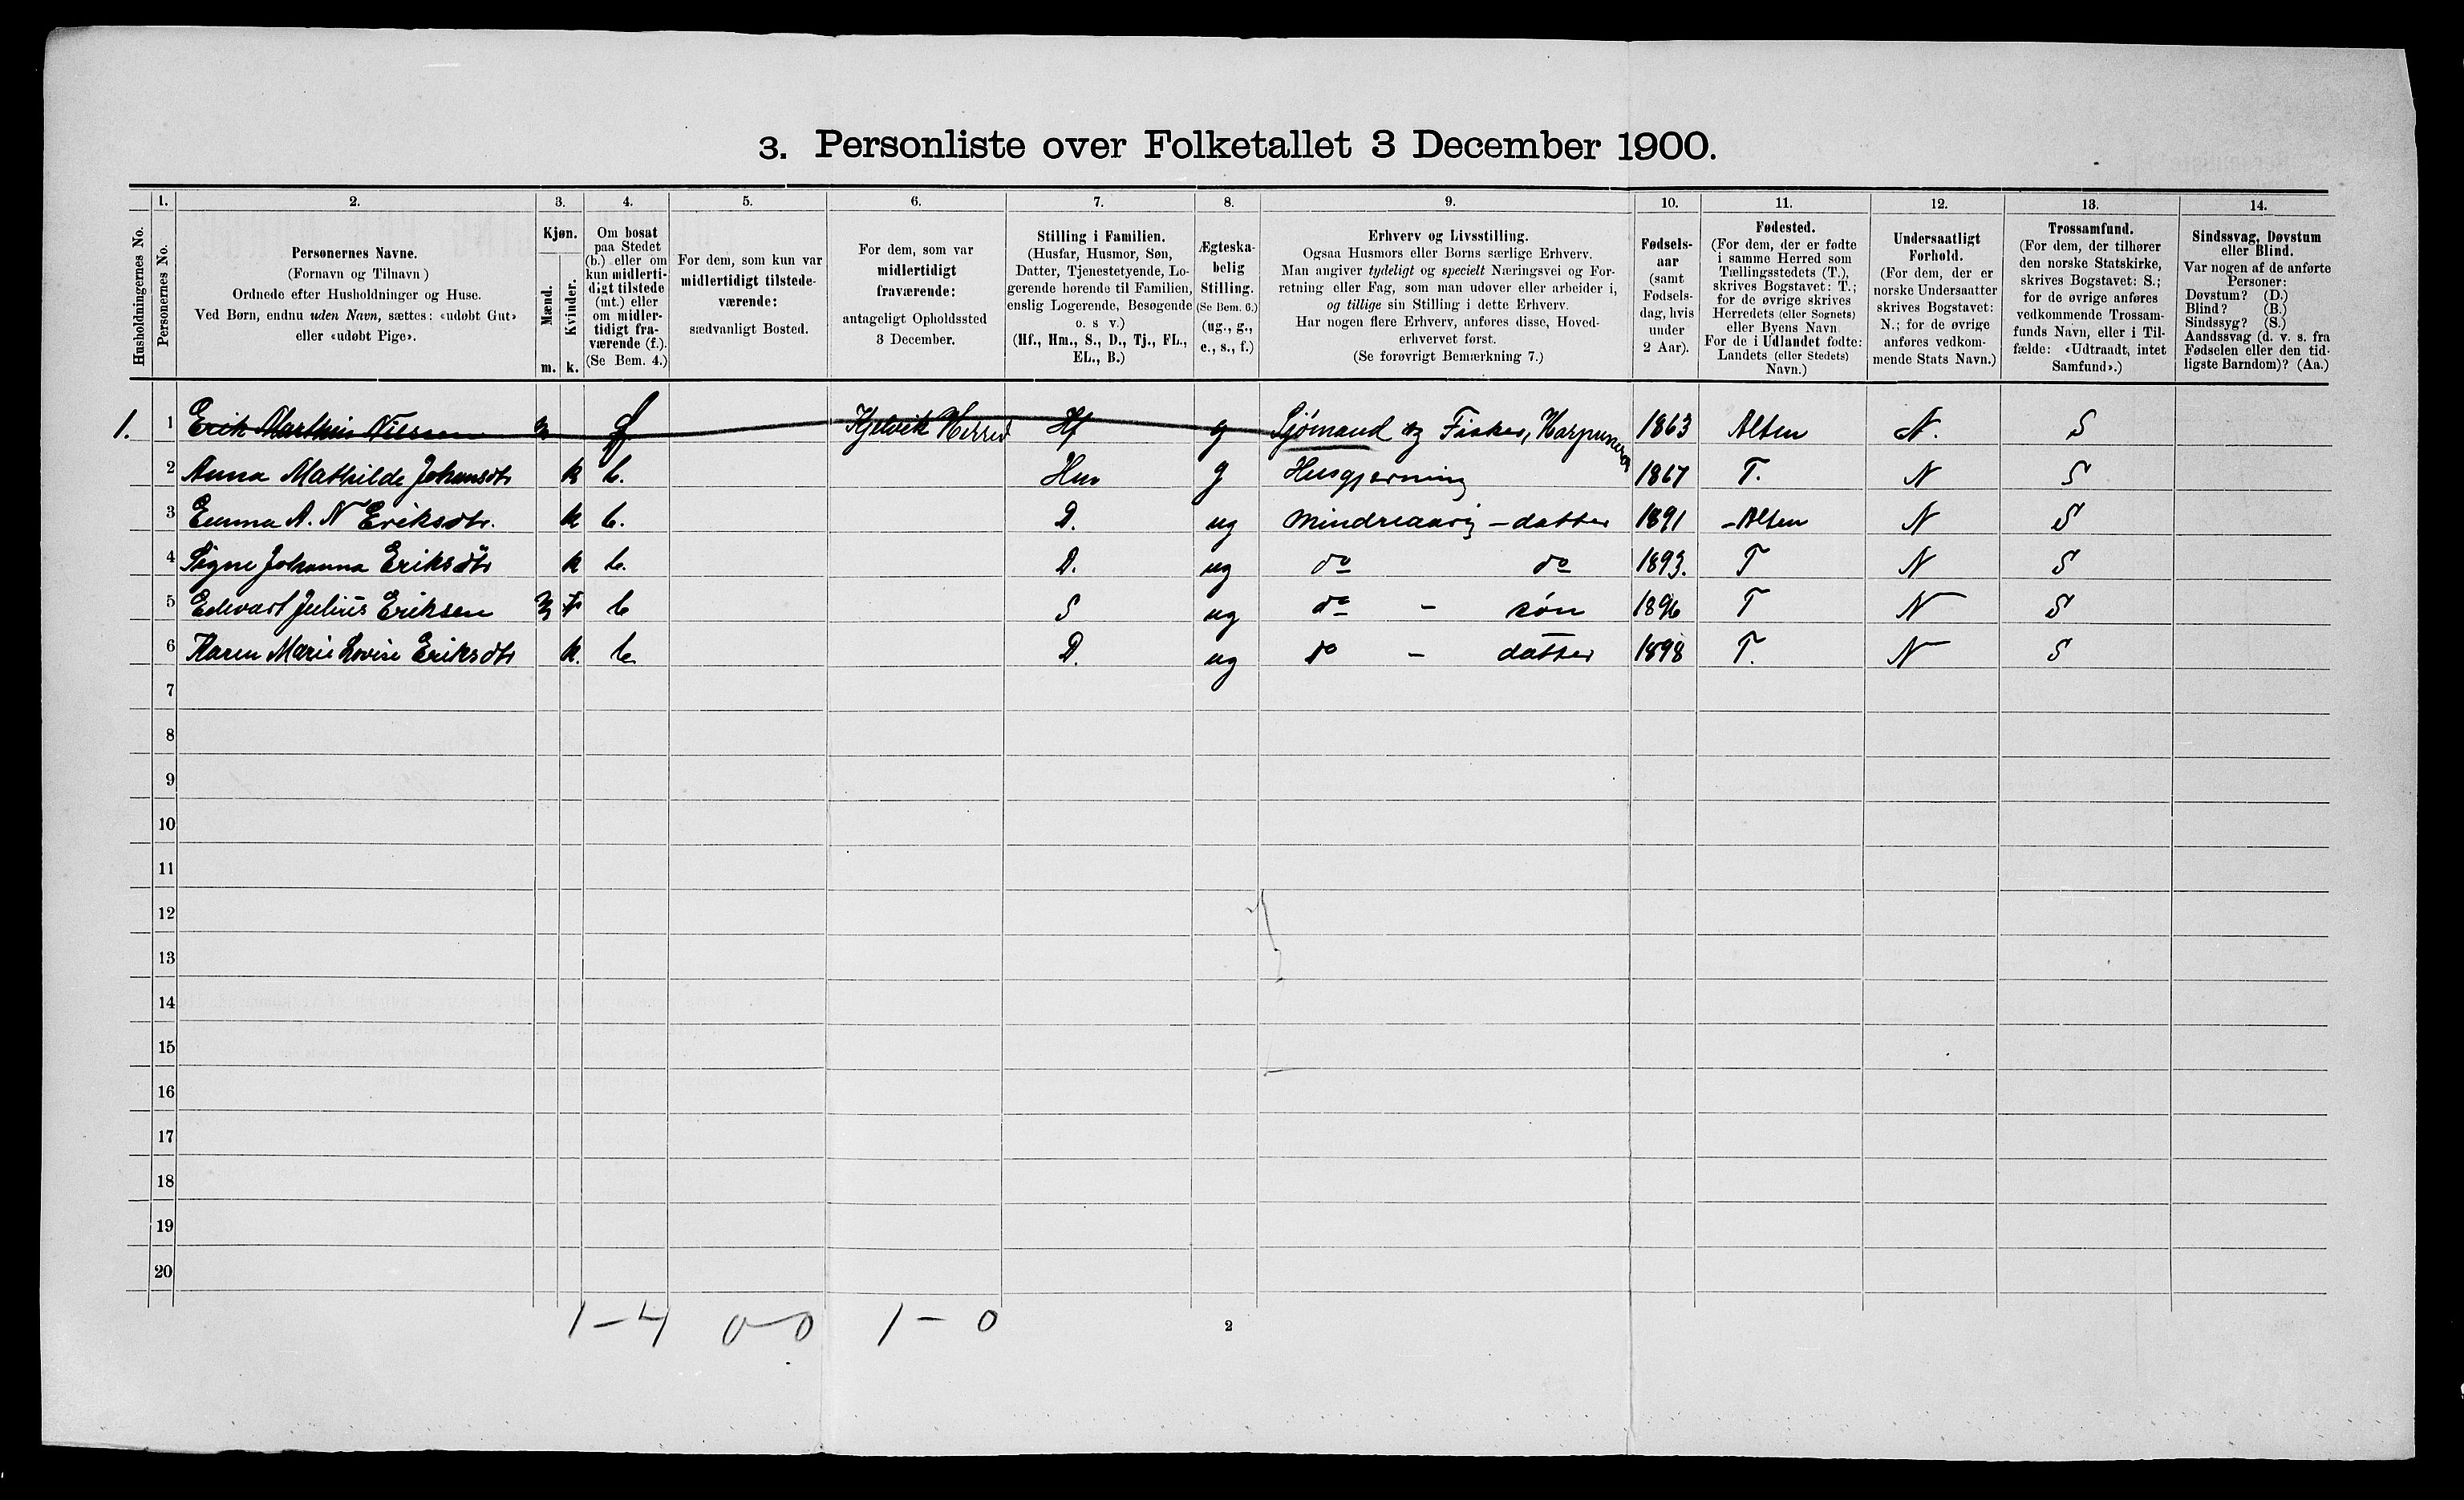 3. Personliste over Folketallet 3 December 1900.
Husholdningernes No.
1.
Personernes No.
2.
Personernes Navne.
(Fornavn og Tilnavn)
Ordnede efter Husholdninger og Huse.
Ved Børn, endnu uden Navn, sættes: «udøbt Gut»
eller «udøbt Pige».
3.
Kjøn.
Mænd.
Kvinder.
m. k.
4.
Om bosat
paa Stedet
(b.) eller om
kun midlerti-
digt tilstede
(mt.) eller
om midler-
tidigt fra-
værende (f.).
(Se Bem. 4.)
5.
For dem, som kun var
midlertidigt tilstede-
værende:
sædvanligt Bosted.
6.
For dem, som var
midlertidigt
fraværende:
antageligt Opholdssted
3 December.
7.
Stilling i Familien.
(Husfar, Husmor, Søn,
Datter, Tjenestetyende, Lo-
gerende hørende til Familien,
enslig Logerende, Besøgende
o. s v.)
(Hf., Hm., S., D., Tj., FL.,
EL., B.)
8.
Ægteska-
belig
Stilling.
(Se Bem. 6.)
(ug., g.,
e., s., f.)
9.
Erhverv og Livsstilling.
Ogsaa Husmors eller Børns særlige Erhverv.
Man angiver tydeligt og specielt Næringsvei og For-
retning eller Fag, som man udøver eller arbeider i,
og tillige sin Stilling i dette Erhverv.
Har nogen flere Erhverv, anføres disse, Hoved-
erhvervet først.
(Se forøvrigt Bemærkning 7.)
10.
Fødsels-
aar
(samt
Fødsels-
dag, hvis
under
2 Aar).
11.
Fødested.
(For dem, der er fødte
i samme Herred som
Tællingsstedets (T.),
skrives Bogstavet: T.;
for de øvrige skrives
Herredets (eller Sognets)
eller Byens Navn.
For de i Udlandet fødte:
Landets (eller Stedets)
Navn.)
12.
Undersaatligt
Forhold.
(For dem, der er
norske Undersaatter
skrives Bogstavet:
N.; for de øvrige
anføres vedkom-
mende Stats Navn.)
13.
Trossamfund.
(For dem, der tilhører
den norske Statskirke,
skrives Bogstavet: S.;
for de øvrige anføres
vedkommende Trossam-
funds Navn, eller i Til-
fælde: «Udtraadt, intet
Samfund».)
14.
Sindssvag, Døvstum
eller Blind.
Var nogen af de anførte
Personer:
Døvstum? (D.)
Blind? (B.)
Sindssyg? (S.)
Aandssvag (d. v. s. fra
Fødselen eller den tid-
ligste Barndom)? (Aa.)
1. 1 Erik Marthin Nilssen m f Kjelvik Herred Hf g Sjömand og Fisker, 1863 Alten N. S
2 Anna Mathilde Johansdtr k b. Hm g Husgjerning 1867 T. N S
3 Emma A. N Eriksdtr. k b. D. ug Mindreaarig - datter 1891 - Alten N S
4 Signe Johanna Eriksdtr k b. D. ug do do 1893. T N S
5 Edvart Julius Eriksen m k b S ug do - søn 1896 T N S
6 Karen Marie Lovise Eriksdtr k. b. D. ug do - datter 1898 T. N S
7
8
9
10
11
12
13
14
15
16
17
18
19
20
1-4 0-0 1-0
2